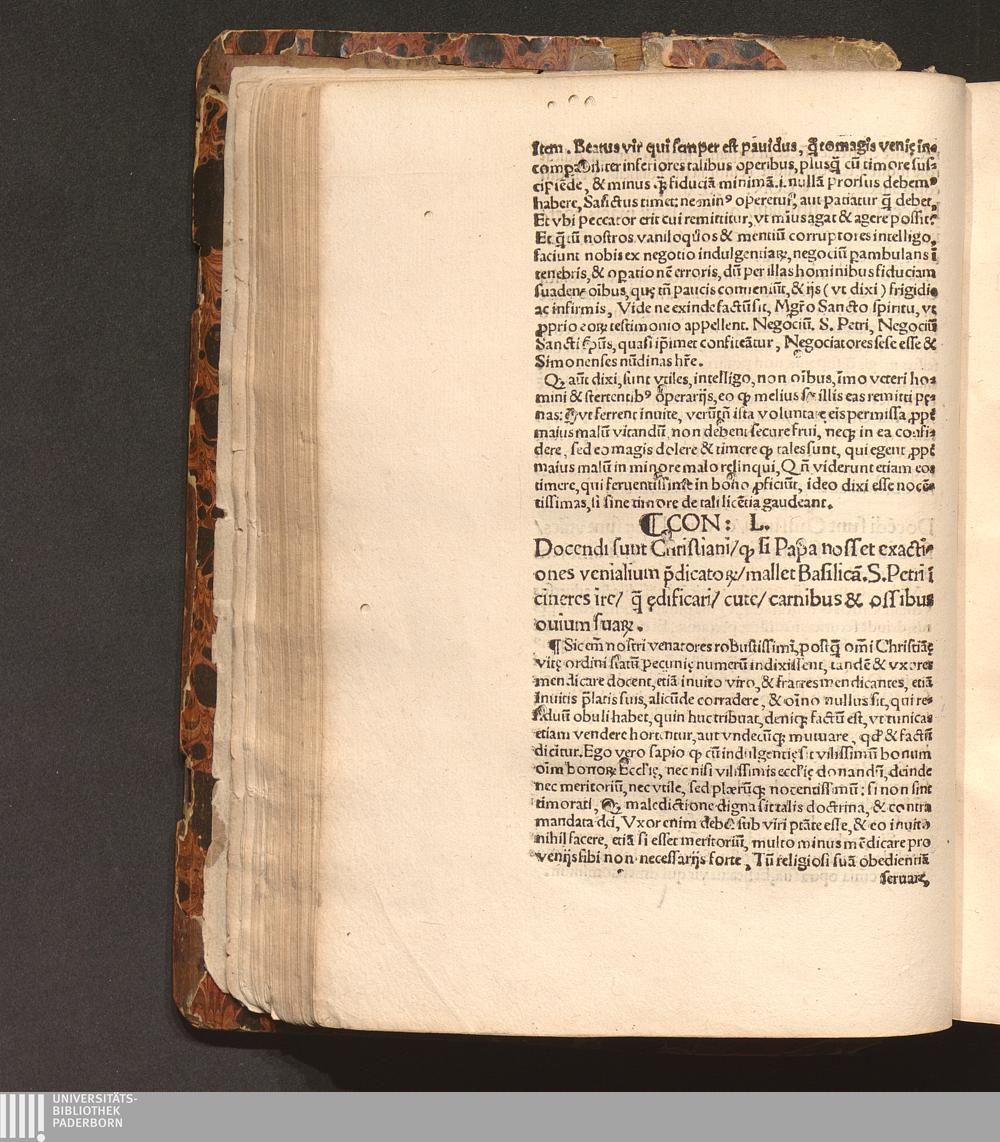 Item. Beatus vir qui semper est pauidus, q̃tomagis venię in⸗
compabiliter inferiores talibus operibus, plusq̃ cũ timore sus⸗
cipiẽde, & minus q̃ fiduciã minimã.i. nullã prorsus debem⁹
habere, Sanctus timet ne min⁹ operetur, aut patiatur q̃ debet,
Et vbi peccator erit cui remittitur, vt minus agat & agere possit?
Et q̃tũ nostros vaniloquos & mentiũ corruptores intelligo,
faciunt nobis ex negotio indulgentiaꝝ, negociũ pambulans ĩ
tenebris, & opationẽ erroris, dũ per illas hominibus fiduciam
suadent oĩbus, quę tñ paucis conueniũt, & ijs ( vt dixi ) frigidis
ac infirmis, Vide ne exinde factũ sit, Mgr̃o Sancto spiritu, vt
ꝓprio eoꝝ testimonio appellent. Negociũ. S. Petri, Negociũ
Sancti sp̃us, quasi ip̃imet confiteãtur, Negociatores sese esse &
Simonenses nũdinas hr̃e.
Qꝫ aũt dixi, sunt vtiles, intelligo, non oĩbus, ĩmo veteri ho⸗
mini & stertentib⁹ operarijs, eo ꝙ melius sit illis eas remitti pę⸗
nas: q̃ vt ferrent inuite, verũtñ ista voluntate eis permissa ꝓpt̃
maius malũ vitandũ, non debent secure frui, neqꝫ in ea confi⸗
dere, sed eo magis dolere & timere ꝙ tales sunt, qui egent ꝓpt̃
maius malũ in minore malo relinqui, Q ñ viderunt etiam eos
timere, qui feruentissime in bono ꝓficiũt, ideo dixi esse nocẽ⸗
tissimas, si sine timore de tali licẽtia gaudeant.
¶CON: L.
Docendi sunt Christiani/ ꝙ si Papa nosset exacti⸗
ones venialium p̃dicatoꝝ/ mallet Basilicã. S. Petri ĩ
cineres ire/ q̃ ędificari/ cute/ carnibus & ossibus
ouium suaꝝ.
¶ Sic em̃ nostri venatores robustissimi, postq̃ om̃i Christianę
vitę ordini statũ pecunię numerũ indixissent, tandẽ & vxores
mendicare docent, etiã inuito viro, & fratres mendicantes, etiã
Inuitis p̃latis suis, alicũde corradere, & oĩno nullus sit, qui re⸗
siduũ obuli habet, quin huc tribuat, deniqꝫ factũ est, vt tunicas
etiam vendere hortentur, aut vndecũqꝫ mutuare, qd̛ & factũ
dicitur. Ego vero sapio ꝙ cũ indulgentię sit vilissimũ bonum
oĩm bonoꝝ Eccl̃ię, nec nisi vilissimis eccl̃ię donandũ, deinde
nec meritoriũ, nec vtile, sed plærũqꝫ nocentissimũ: si non sint
timorati, Qꝫ maledictione digna sit talis doctrina, & contra
mandata dei, Vxor enim debet sub viri ptãte esse, & eo inuito
nihil facere, etiã si esset meritoriũ, multo minus mẽdicare pro
venijs sibi non necessarijs forte, Tũ religiosi suã obedientiã
seruare,
UNIVERSITÄTS-
BIBLIOTHEK
PADERBORN